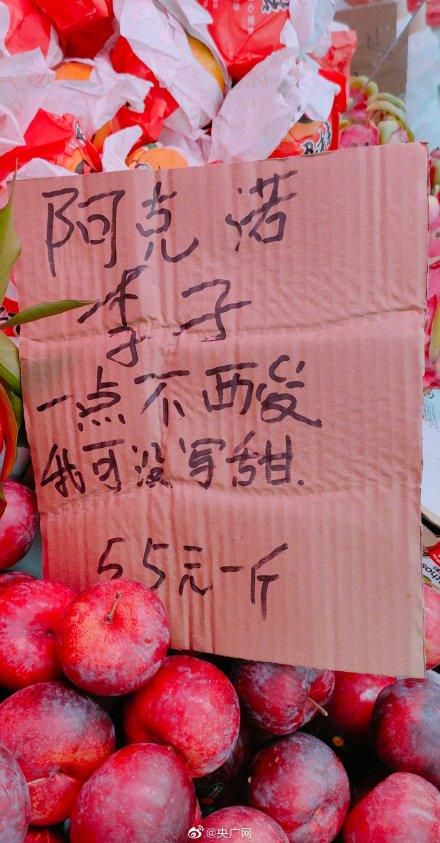 阿克诺
李子
一点不酸
我可没写甜.
55元一斤
@央广网